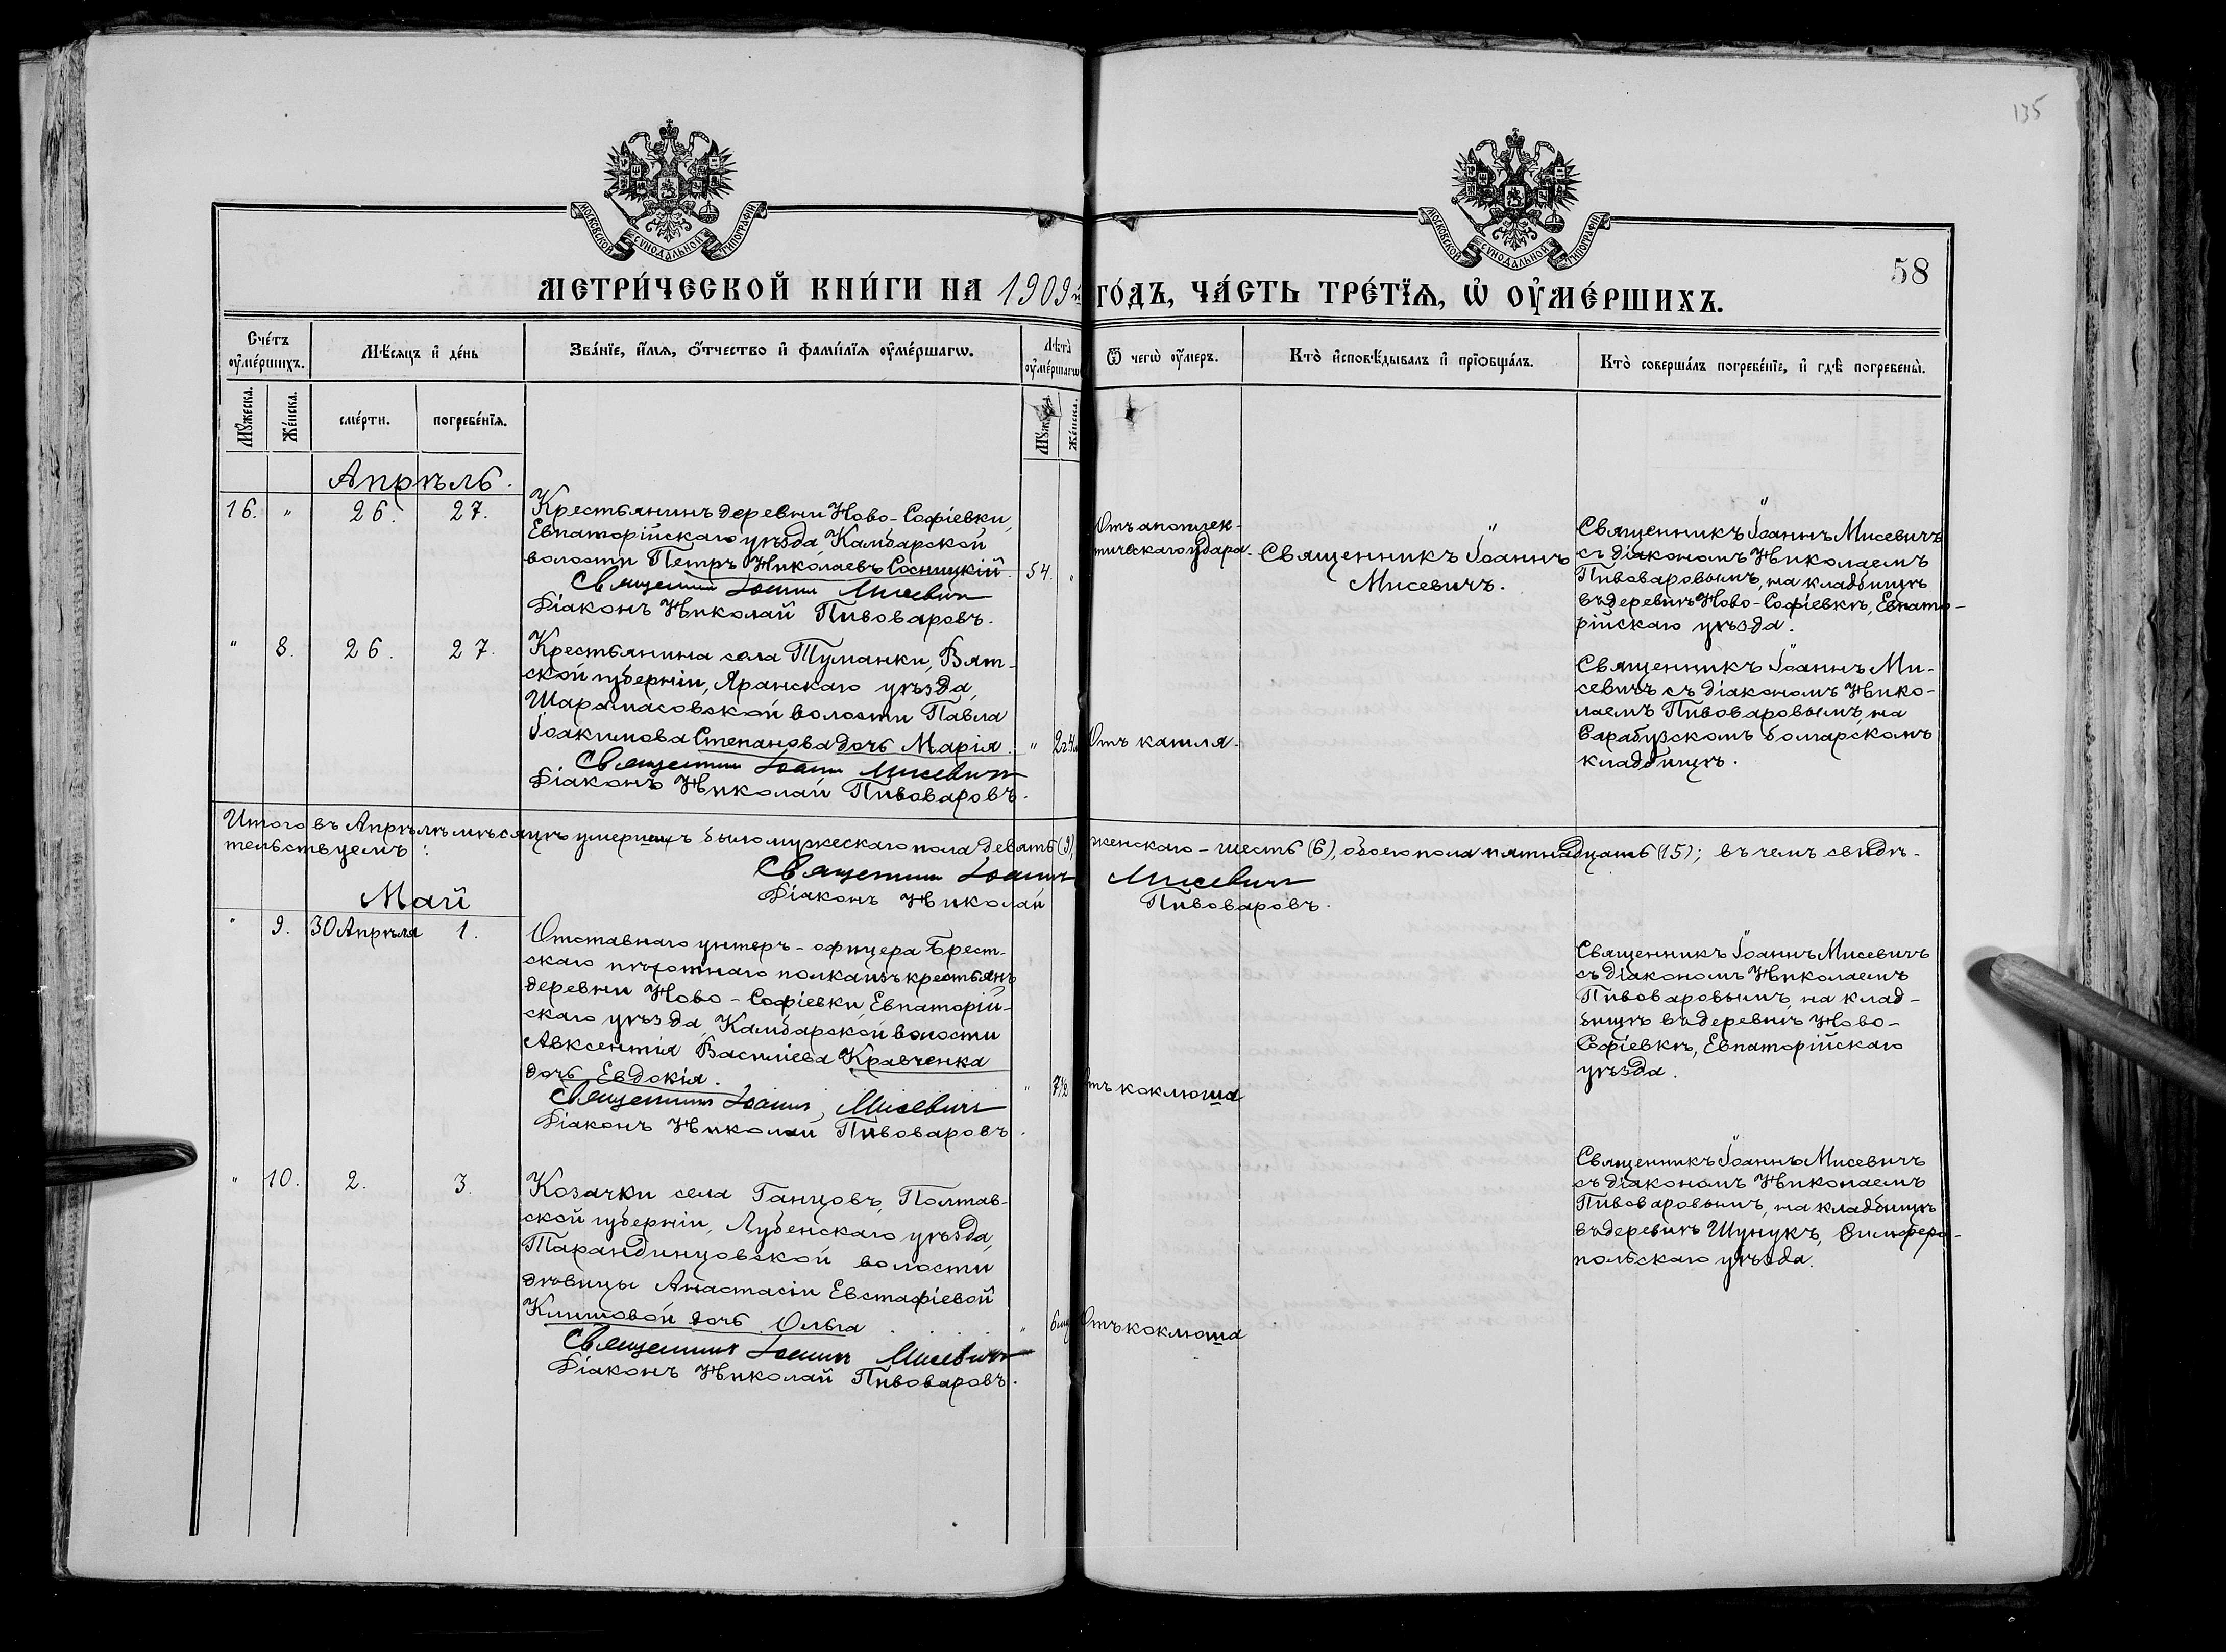 135
МОСКОВСКОЙ СѴНОДАЛЬНОЙ ТИПОГРАФІИ
МОСКОВСКОЙ СѴНОДАЛЬНОЙ ТИПОГРАФІИ
58
МЕТРИ́ЧЕСКОЙ КНИ́ГИ НА 1909й ГО́ДЪ, ЧА́СТЬ ТРЕ́ТІѦ, Ѡ҆ ОУ҆МЕ́РШИХЪ.
Сче́тъ оу҆ме́ршихъ.
Мѣ́сяцъ и҆ де́нь
Зва́нїе, и҆́мѧ, ѻ҆́тчество и҆ фами́лїѧ оу҆ме́ршагѡ.
Лѣта̀ оу҆ме́ршагѡ
Ѿ чегѡ̀ оу҆́меръ.
Кто̀ и҆сповѣ́дывалъ и҆ прїѡбща́лъ.
Кто̀ соверша́лъ погребе́нїе, и҆ гдѣ̀ погребены̀.
Мꙋ́жеска.
Же́нска.
сме́рти.
погребе́нїѧ.
Мꙋ́жеска.
Же́нска.
Апрѣль.
16. " 26. 27.
Крестьянинъ деревни Ново-Софіевки,
Евпаторійскаго уѣзда, Камбарской
волости Петръ Николаевъ Сосницкій.
Священникъ Іоаннъ Мисевичъ
Діаконъ Николай Пивоваровъ.
54. "
Отъ апоплек-
тическаго удара.
Священникъ Іоаннъ
Мисевичъ.
Священникъ Іоаннъ Мисевичъ
съ діакономъ Николаемъ
Пивоваровымъ, на кладбищѣ
въ деревнѣ Ново-Софіевкѣ, Евпато-
рійскаго уѣзда.
" 8. 26. 27.
Крестьянина села Туманки, Вят-
ской губерніи, Яранскаго уѣзда,
Шарамасовской волости Павла
Іоакимова Степанова дочь Марія.
Священникъ Іоаннъ Мисевичъ
Діаконъ Николай Пивоваровъ.
"
Отъ кашля.
Священникъ Іоаннъ Ми-
севичъ съ діакономъ Нико-
лаемъ Пивоваровымъ, на
Сарабузскомъ болгарскомъ
кладбищѣ.
Итого въ Апрѣлѣ мѣсяцѣ умершихъ было мужескаго пола девять (9), женскаго - шесть (6), обоего пола пятнадцать (15); въ чемъ свидѣ-
тельствуемъ:
Священникъ Іоаннъ Мисевичъ
Діаконъ Николай Пивоваровъ.
Май
" 9. 30 Апрѣля 1.
Отставнаго унтеръ-офицера Брест-
скаго пѣхотнаго полка изъ крестьянъ
деревни Ново-Софіевки, Евпаторій-
скаго уѣзда, Камбарской волости
Авксентія Василіева Кравченка
дочь Евдокія.
Священникъ Іоаннъ Мисевичъ
Діаконъ Николай Пивоваровъ.
" 7½
Отъ коклюша
Священникъ Іоаннъ Мисевичъ
съ діакономъ Николаемъ
Пивоваровымъ, на клад-
бищѣ въ деревнѣ Ново-
Софіевкѣ, Евпаторійскаго
уѣзда.
" 10. 2. 3.
Козачки села Ганцовъ, Полтав-
ской губерніи, Лубенскаго уѣзда,
Тарандинцовской волости
дѣвицы Анастасіи Евстафіевой
Климовой дочь Ольга
Священникъ Іоаннъ Мисевичъ
Діаконъ Николай Пивоваровъ.
" 6 мц
Отъ коклюша
Священникъ Іоаннъ Мисевичъ
съ діакономъ Николаемъ
Пивоваровымъ, на кладбищѣ
въ деревнѣ Шунукъ, Симферо-
польскаго уѣзда.